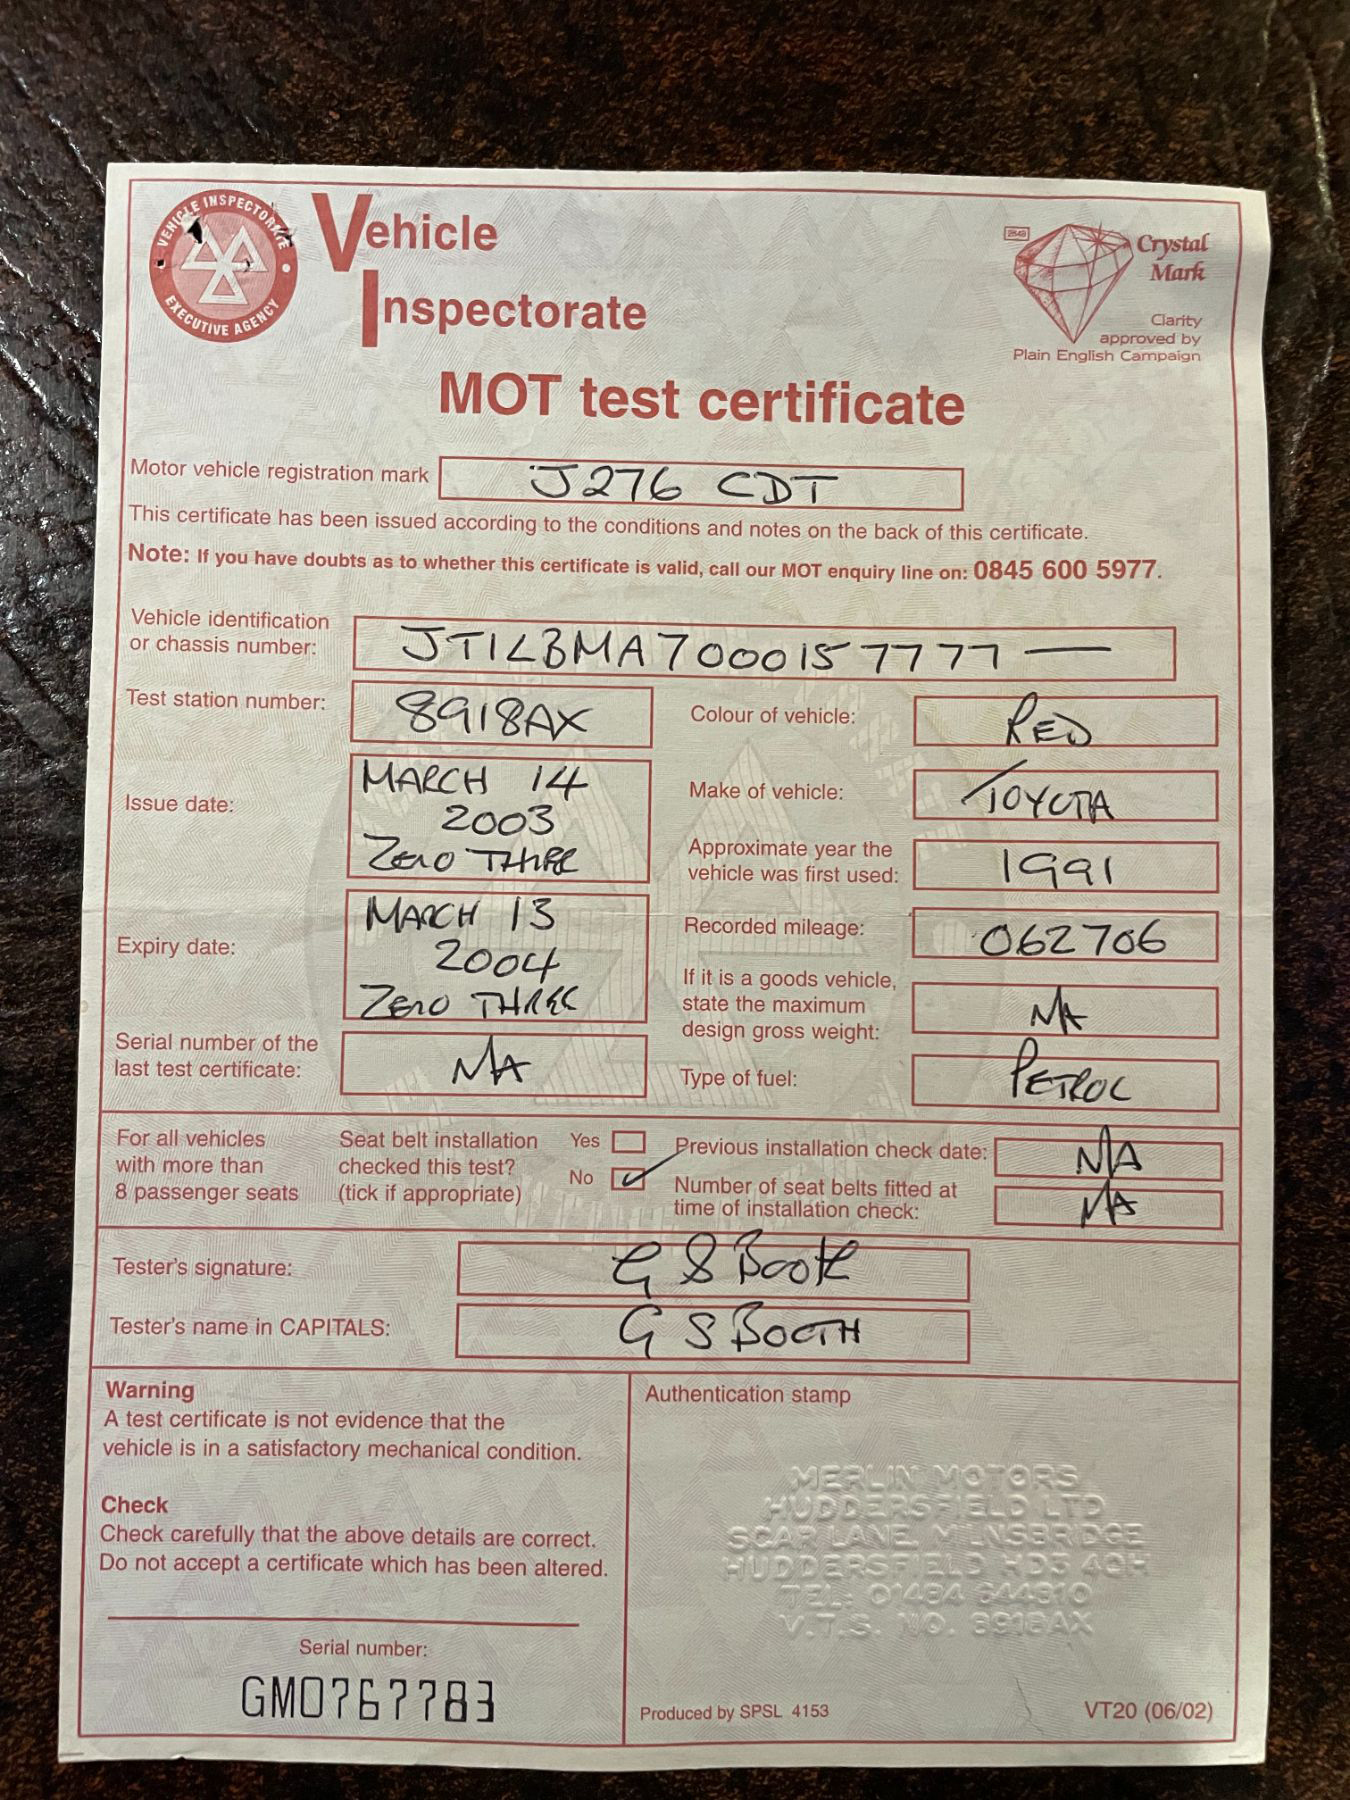 VEHICLE INSPECTORATE
EXECUTIVE AGENCY
Vehicle
Inspectorate
Crystal
Mark
Clarity
approved by
Plain English Campaign
MOT test certificate
Motor vehicle registration mark J276 CDT
This certificate has been issued according to the conditions and notes on the back of this certificate.
Note: If you have doubts as to whether this certificate is valid, call our MOT enquiry line on: 0845 600 5977.
Vehicle identification
or chassis number: JT1LBMA7000157777 —
Test station number: 8918AX
Colour of vehicle: RED
Issue date: MARCH 14
2003
ZERO THREE
Make of vehicle: TOYOTA
Approximate year the
vehicle was first used: 1991
Expiry date: MARCH 13
2004
ZERO THREE
Recorded mileage: 062706
If it is a goods vehicle,
state the maximum
design gross weight: N/A
Serial number of the
last test certificate: N/A
Type of fuel: PETROL
For all vehicles
with more than
8 passenger seats
Seat belt installation
checked this test?
(tick if appropriate)
Yes
No
Previous installation check date: N/A
Number of seat belts fitted at
time of installation check: N/A
Tester's signature: G S Booth
Tester's name in CAPITALS: G S BOOTH
Warning
A test certificate is not evidence that the
vehicle is in a satisfactory mechanical condition.
Check
Check carefully that the above details are correct.
Do not accept a certificate which has been altered.
Serial number:
GM0767783
Authentication stamp
MERLIN MOTORS
HUDDERSFIELD LTD
SCAR LANE, MILNSBRIDGE
HUDDERSFIELD HD3 4QH
TEL: 01484
V.T.S. NO. 8918AX
Produced by SPSL 4153
VT20 (06/02)